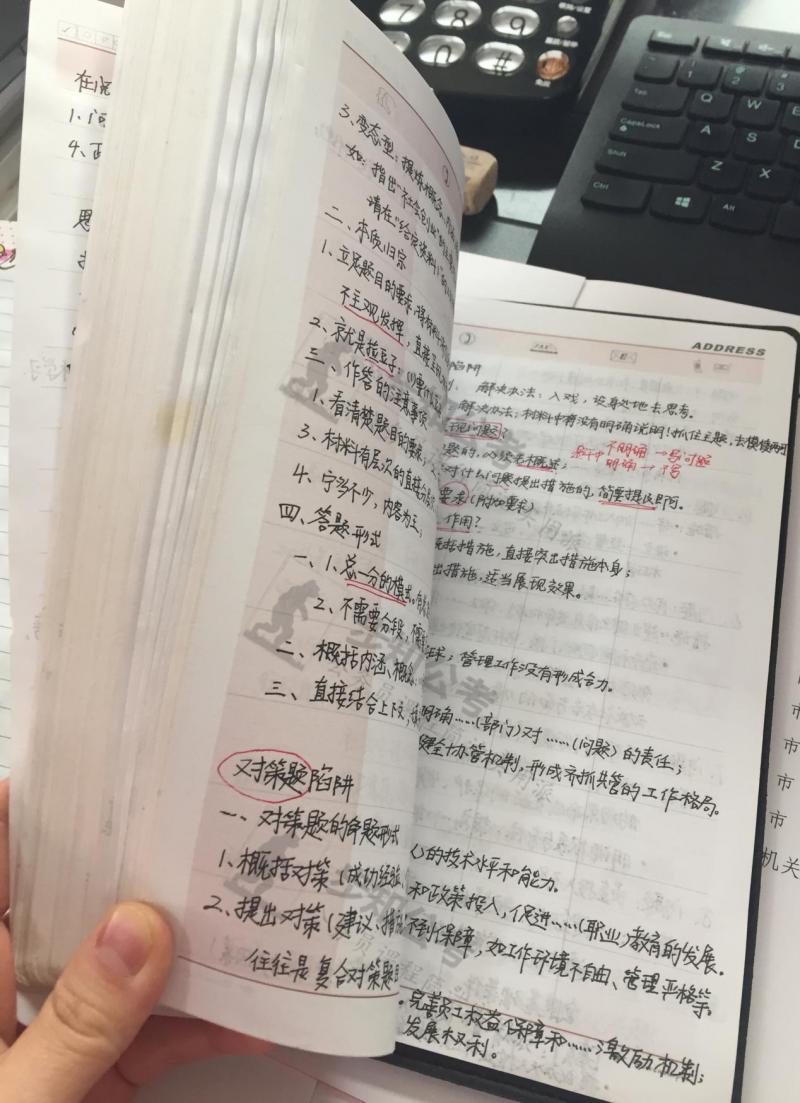 3、变态型：提炼
如：指出"社会创业"的
请在"给定资料1"
二、本质归宗
1、立足题目的要求,将材料
不主观发挥，直接
2、京就是拉豆子：(1)要什么
三、作答的注意事项
1、看清楚题目的要求；
3、材料有层次的直接分层次
4、宁多不少，内容为王；
四、答题形式
一、1、总一分的模式。
2、不需要分段，不需
二、概括内涵、概念
三、直接结合上下文，
对策题陷阱
一、对策题的命题形式
1、概括对策（成功经验、
2、提出对策（建议、措施
往往是复合对策题目
ADDRESS
陷阱
解决办法：入戏，设身处地去思考。
解决办法：材料中有没有明确说明！抓住主题，去模棱两可
现问题？
题的，必须先概述；
材料中 不明确 → 写问题
明确 → 不写
对什么问题提出措施的，简要提及即可。
要求（附加要求）
作用？
概括措施，直接突出措施本身；
出措施，适当展现效果。
球；管理工作没有形成合力。
明确……(部门)对……(问题)的责任；
健全协管机制，形成齐抓共管的工作格局。
()的技术水平和能力。
和政策投入，促进……(职业)教育的发展。
不到保障，如工作环境不自由、管理严格等。
。完善员工权益保障和……激励机制；
发展权利。
在
1、问
4、
思
7 8 9
0 #
Esc
1 2
Tab Q W
CapsLock A S
Shift Z X
Ctrl Alt
市
市
市
市
机关